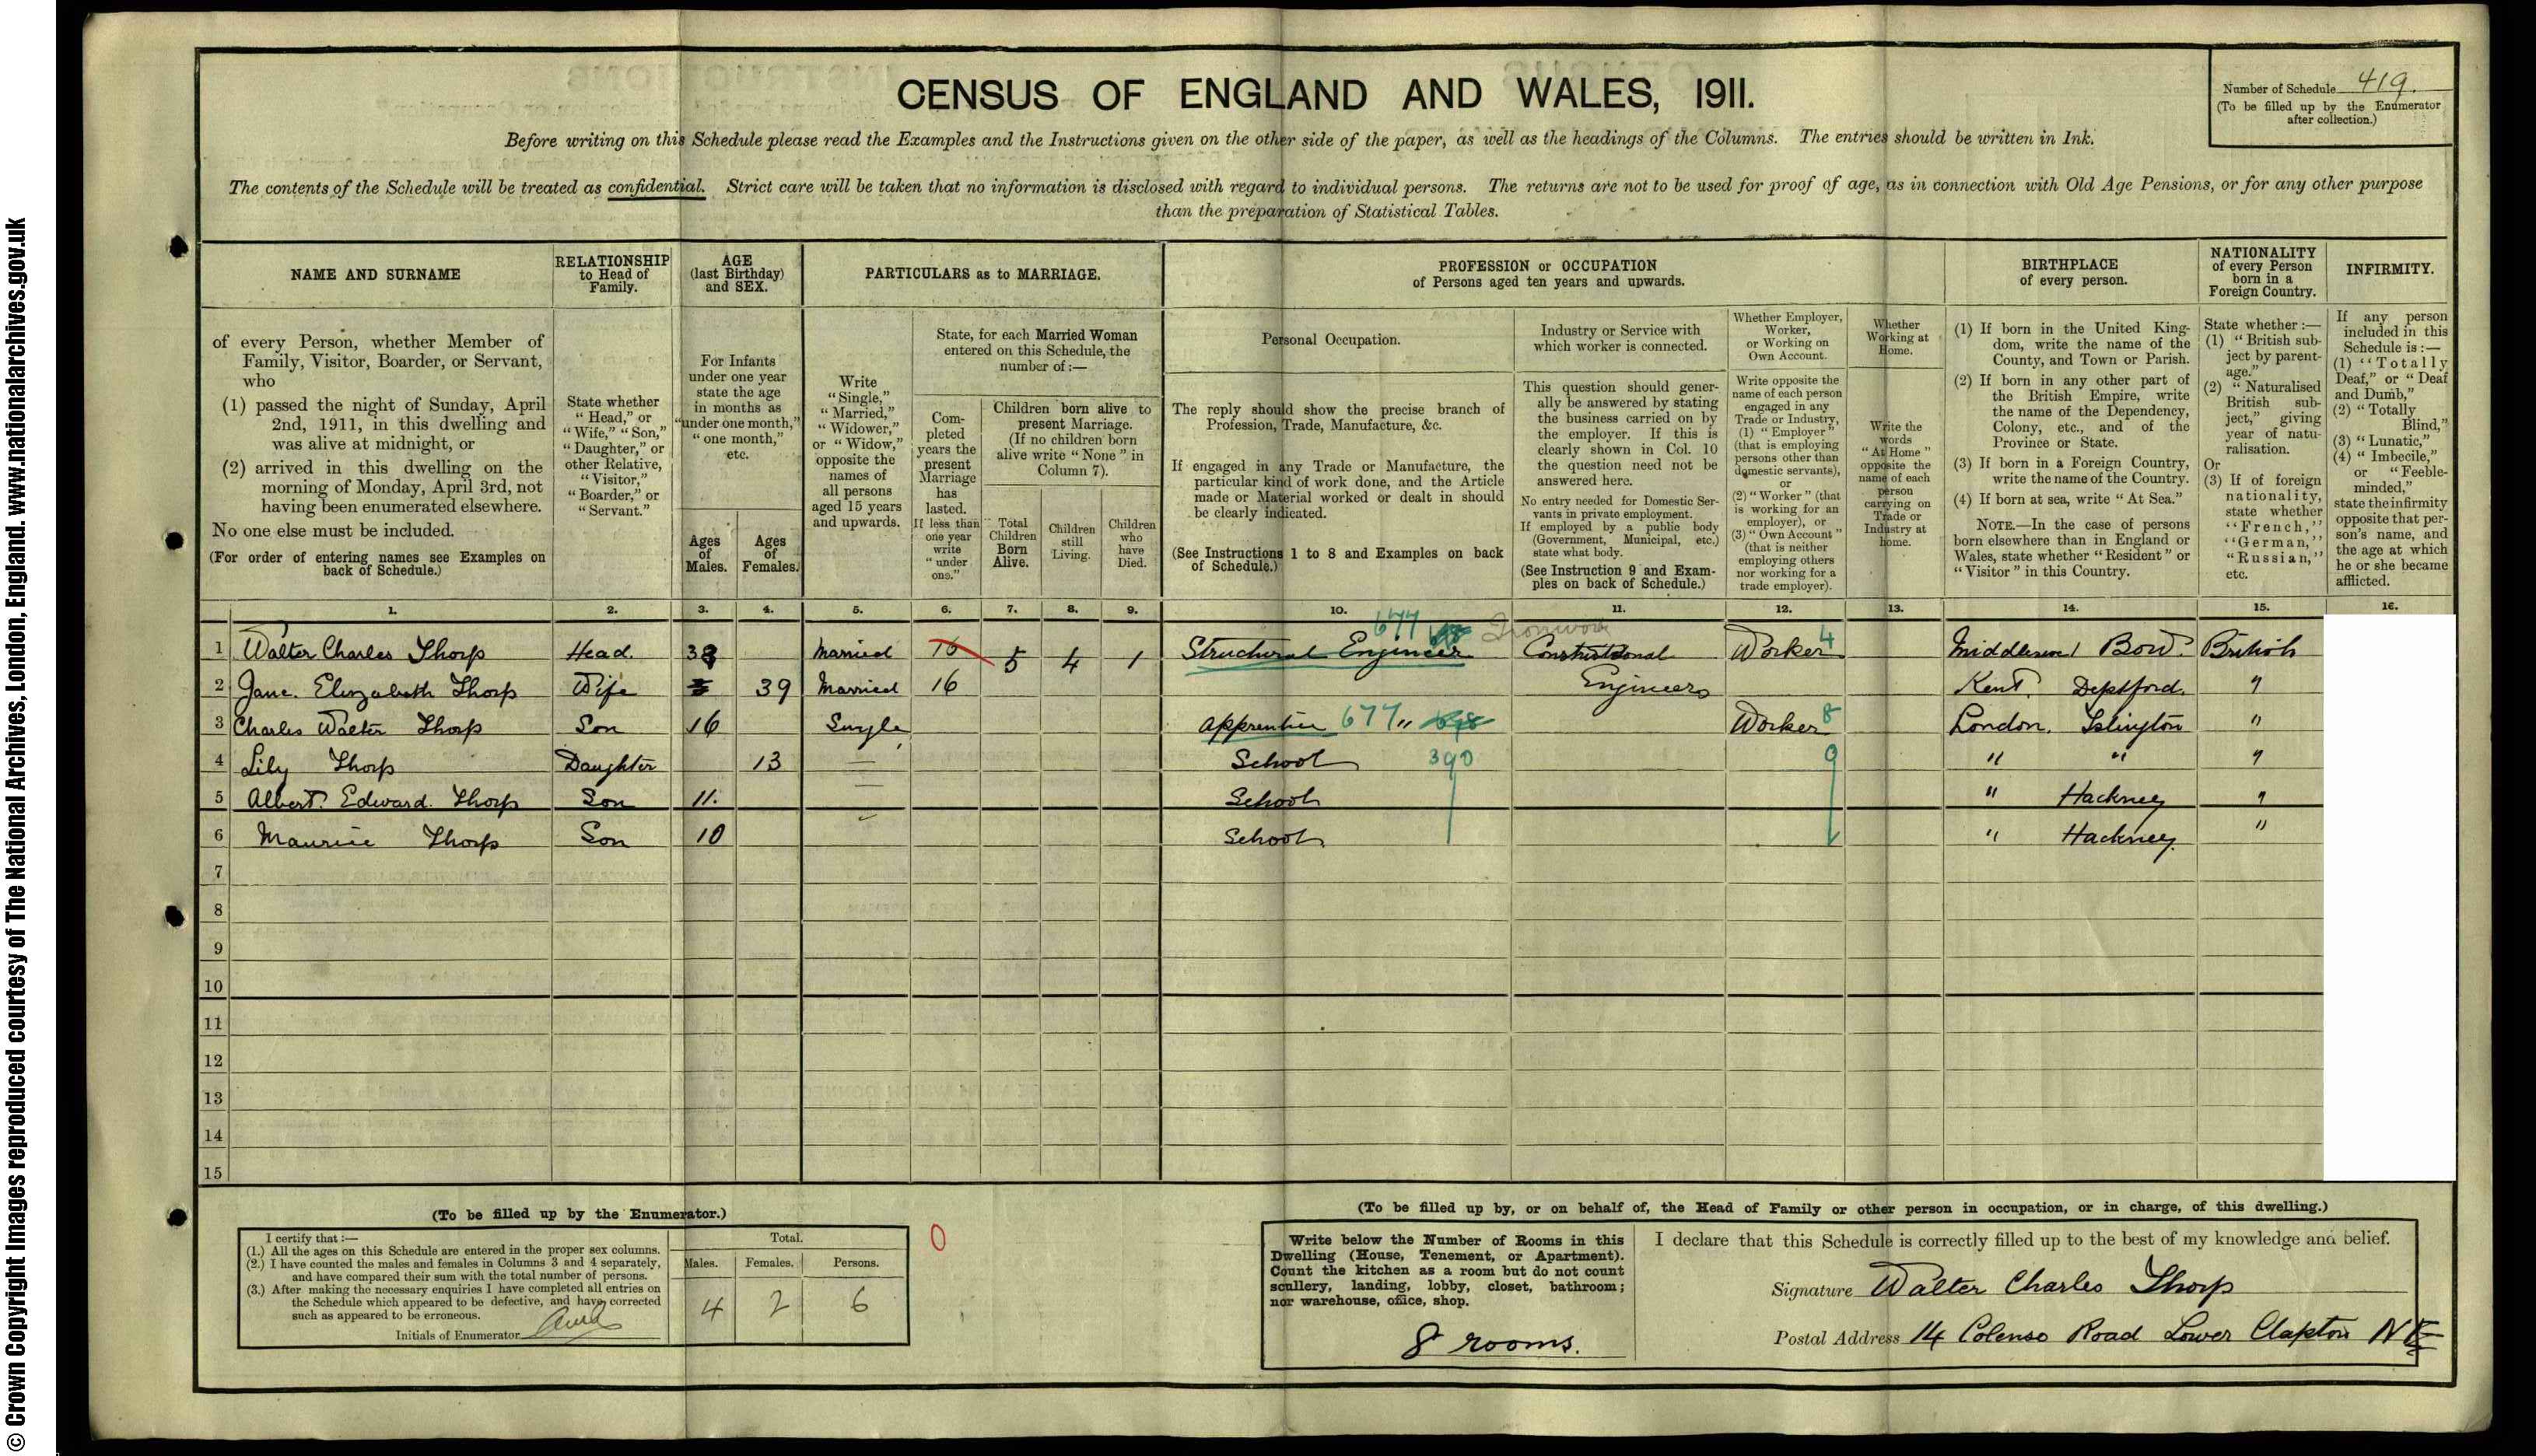 © Crown Copyright Images reproduced courtesy of The National Archives, London, England. www.nationalarchives.gov.uk
CENSUS OF ENGLAND AND WALES, 1911.
Number of Schedule 419.
(To be filled up by the Enumerator
after collection.)
Before writing on this Schedule please read the Examples and the Instructions given on the other side of the paper, as well as the headings of the Columns. The entries should be written in Ink.
The contents of the Schedule will be treated as confidential. Strict care will be taken that no information is disclosed with regard to individual persons. The returns are not to be used for proof of age, as in connection with Old Age Pensions, or for any other purpose
than the preparation of Statistical Tables.
NAME AND SURNAME
of every Person, whether Member of
Family, Visitor, Boarder, or Servant,
who
(1) passed the night of Sunday, April
2nd, 1911, in this dwelling and
was alive at midnight, or
(2) arrived in this dwelling on the
morning of Monday, April 3rd, not
having been enumerated elsewhere.
No one else must be included.
(For order of entering names see Examples on
back of Schedule.)
RELATIONSHIP
to Head of
Family.
State whether
"Head," or
"Wife," "Son,"
"Daughter," or
other Relative,
"Visitor,"
"Boarder," or
"Servant."
AGE
(last Birthday)
and SEX.
For Infants
under one year
state the age
in months as
"under one month,"
"one month,"
etc.
Ages
of
Males.
Ages
of
Females.
PARTICULARS as to MARRIAGE.
Write
"Single,"
"Married,"
"Widower,"
or "Widow,"
opposite the
names of
all persons
aged 15 years
and upwards.
State, for each Married Woman
entered on this Schedule, the
number of :—
Com-
pleted
years the
present
Marriage
has
lasted.
If less than
one year
write
"under
one."
Children born alive to
present Marriage.
(If no children born
alive write "None" in
Column 7).
Total
Children
Born
Alive.
Children
still
Living.
Children
who
have
Died.
PROFESSION or OCCUPATION
of Persons aged ten years and upwards.
Personal Occupation.
The reply should show the precise branch of
Profession, Trade, Manufacture, &c.
If engaged in any Trade or Manufacture, the
particular kind of work done, and the Article
made or Material worked or dealt in should
be clearly indicated.
(See Instructions 1 to 8 and Examples on back
of Schedule.)
Industry or Service with
which worker is connected.
This question should gener-
ally be answered by stating
the business carried on by
the employer. If this is
clearly shown in Col. 10
the question need not be
answered here.
No entry needed for Domestic Ser-
vants in private employment.
If employed by a public body
(Government, Municipal, etc.)
state what body.
(See Instruction 9 and Exam-
ples on back of Schedule.)
Whether Employer,
Worker,
or Working on
Own Account.
Write opposite the
name of each person
engaged in any
Trade or Industry,
(1) "Employer"
(that is employing
persons other than
domestic servants),
or
(2) "Worker" (that
is working for an
employer), or
(3) "Own Account"
(that is neither
employing others
nor working for a
trade employer).
Whether
Working at
Home.
Write the
words
"At Home"
opposite the
name of each
person
carrying on
Trade or
Industry at
home.
BIRTHPLACE
of every person.
(1) If born in the United King-
dom, write the name of the
County, and Town or Parish.
(2) If born in any other part of
the British Empire, write
the name of the Dependency,
Colony, etc., and of the
Province or State.
(3) If born in a Foreign Country,
write the name of the Country.
(4) If born at sea, write "At Sea."
NOTE.—In the case of persons
born elsewhere than in England or
Wales, state whether "Resident" or
"Visitor" in this Country.
NATIONALITY
of every Person
born in a
Foreign Country.
State whether :—
(1) "British sub-
ject by parent-
age."
(2) "Naturalised
British sub-
ject," giving
year of natu-
ralisation.
Or
(3) If of foreign
nationality,
state whether
"French,"
"German,"
"Russian,"
etc.
INFIRMITY.
If any person
included in this
Schedule is :—
(1) "Totally
Deaf," or "Deaf
and Dumb,"
(2) "Totally
Blind,"
(3) "Lunatic,"
(4) "Imbecile,"
or "Feeble-
minded,"
state the infirmity
opposite that per-
son's name, and
the age at which
he or she became
afflicted.
1. 2. 3. 4. 5. 6. 7. 8. 9. 10. 11. 12. 13. 14. 15. 16.
677 Ironwork
1 Walter Charles Thorp Head. 38 Married 16 5 4 1 Structural Engineer Constructional Worker 4 Middlesex Bow. British
2 Jane. Elizabeth Thorp Wife 39 Married 16 Engineers Kent. Deptford. "
3 Charles Walter Thorp Son 16 Single Apprentice 677 " Worker 8 London. Islington "
4 Lily Thorp Daughter 13 — School 390 9 " " "
5 Albert Edward. Thorp Son 11. — School " Hackney "
6 Maurice Thorp Son 10 School " Hackney. "
7
8
9
10
11
12
13
14
15
(To be filled up by the Enumerator.)
I certify that :—
(1.) All the ages on this Schedule are entered in the proper sex columns.
(2.) I have counted the males and females in Columns 3 and 4 separately,
and have compared their sum with the total number of persons.
(3.) After making the necessary enquiries I have completed all entries on
the Schedule which appeared to be defective, and have corrected
such as appeared to be erroneous.
Initials of Enumerator
Total.
Males. Females. Persons.
4 2 6
0
(To be filled up by, or on behalf of, the Head of Family or other person in occupation, or in charge, of this dwelling.)
Write below the Number of Rooms in this
Dwelling (House, Tenement, or Apartment).
Count the kitchen as a room but do not count
scullery, landing, lobby, closet, bathroom;
nor warehouse, office, shop.
8 rooms.
I declare that this Schedule is correctly filled up to the best of my knowledge and belief.
Signature Walter Charles Thorp
Postal Address 14 Colenso Road Lower Clapton NE